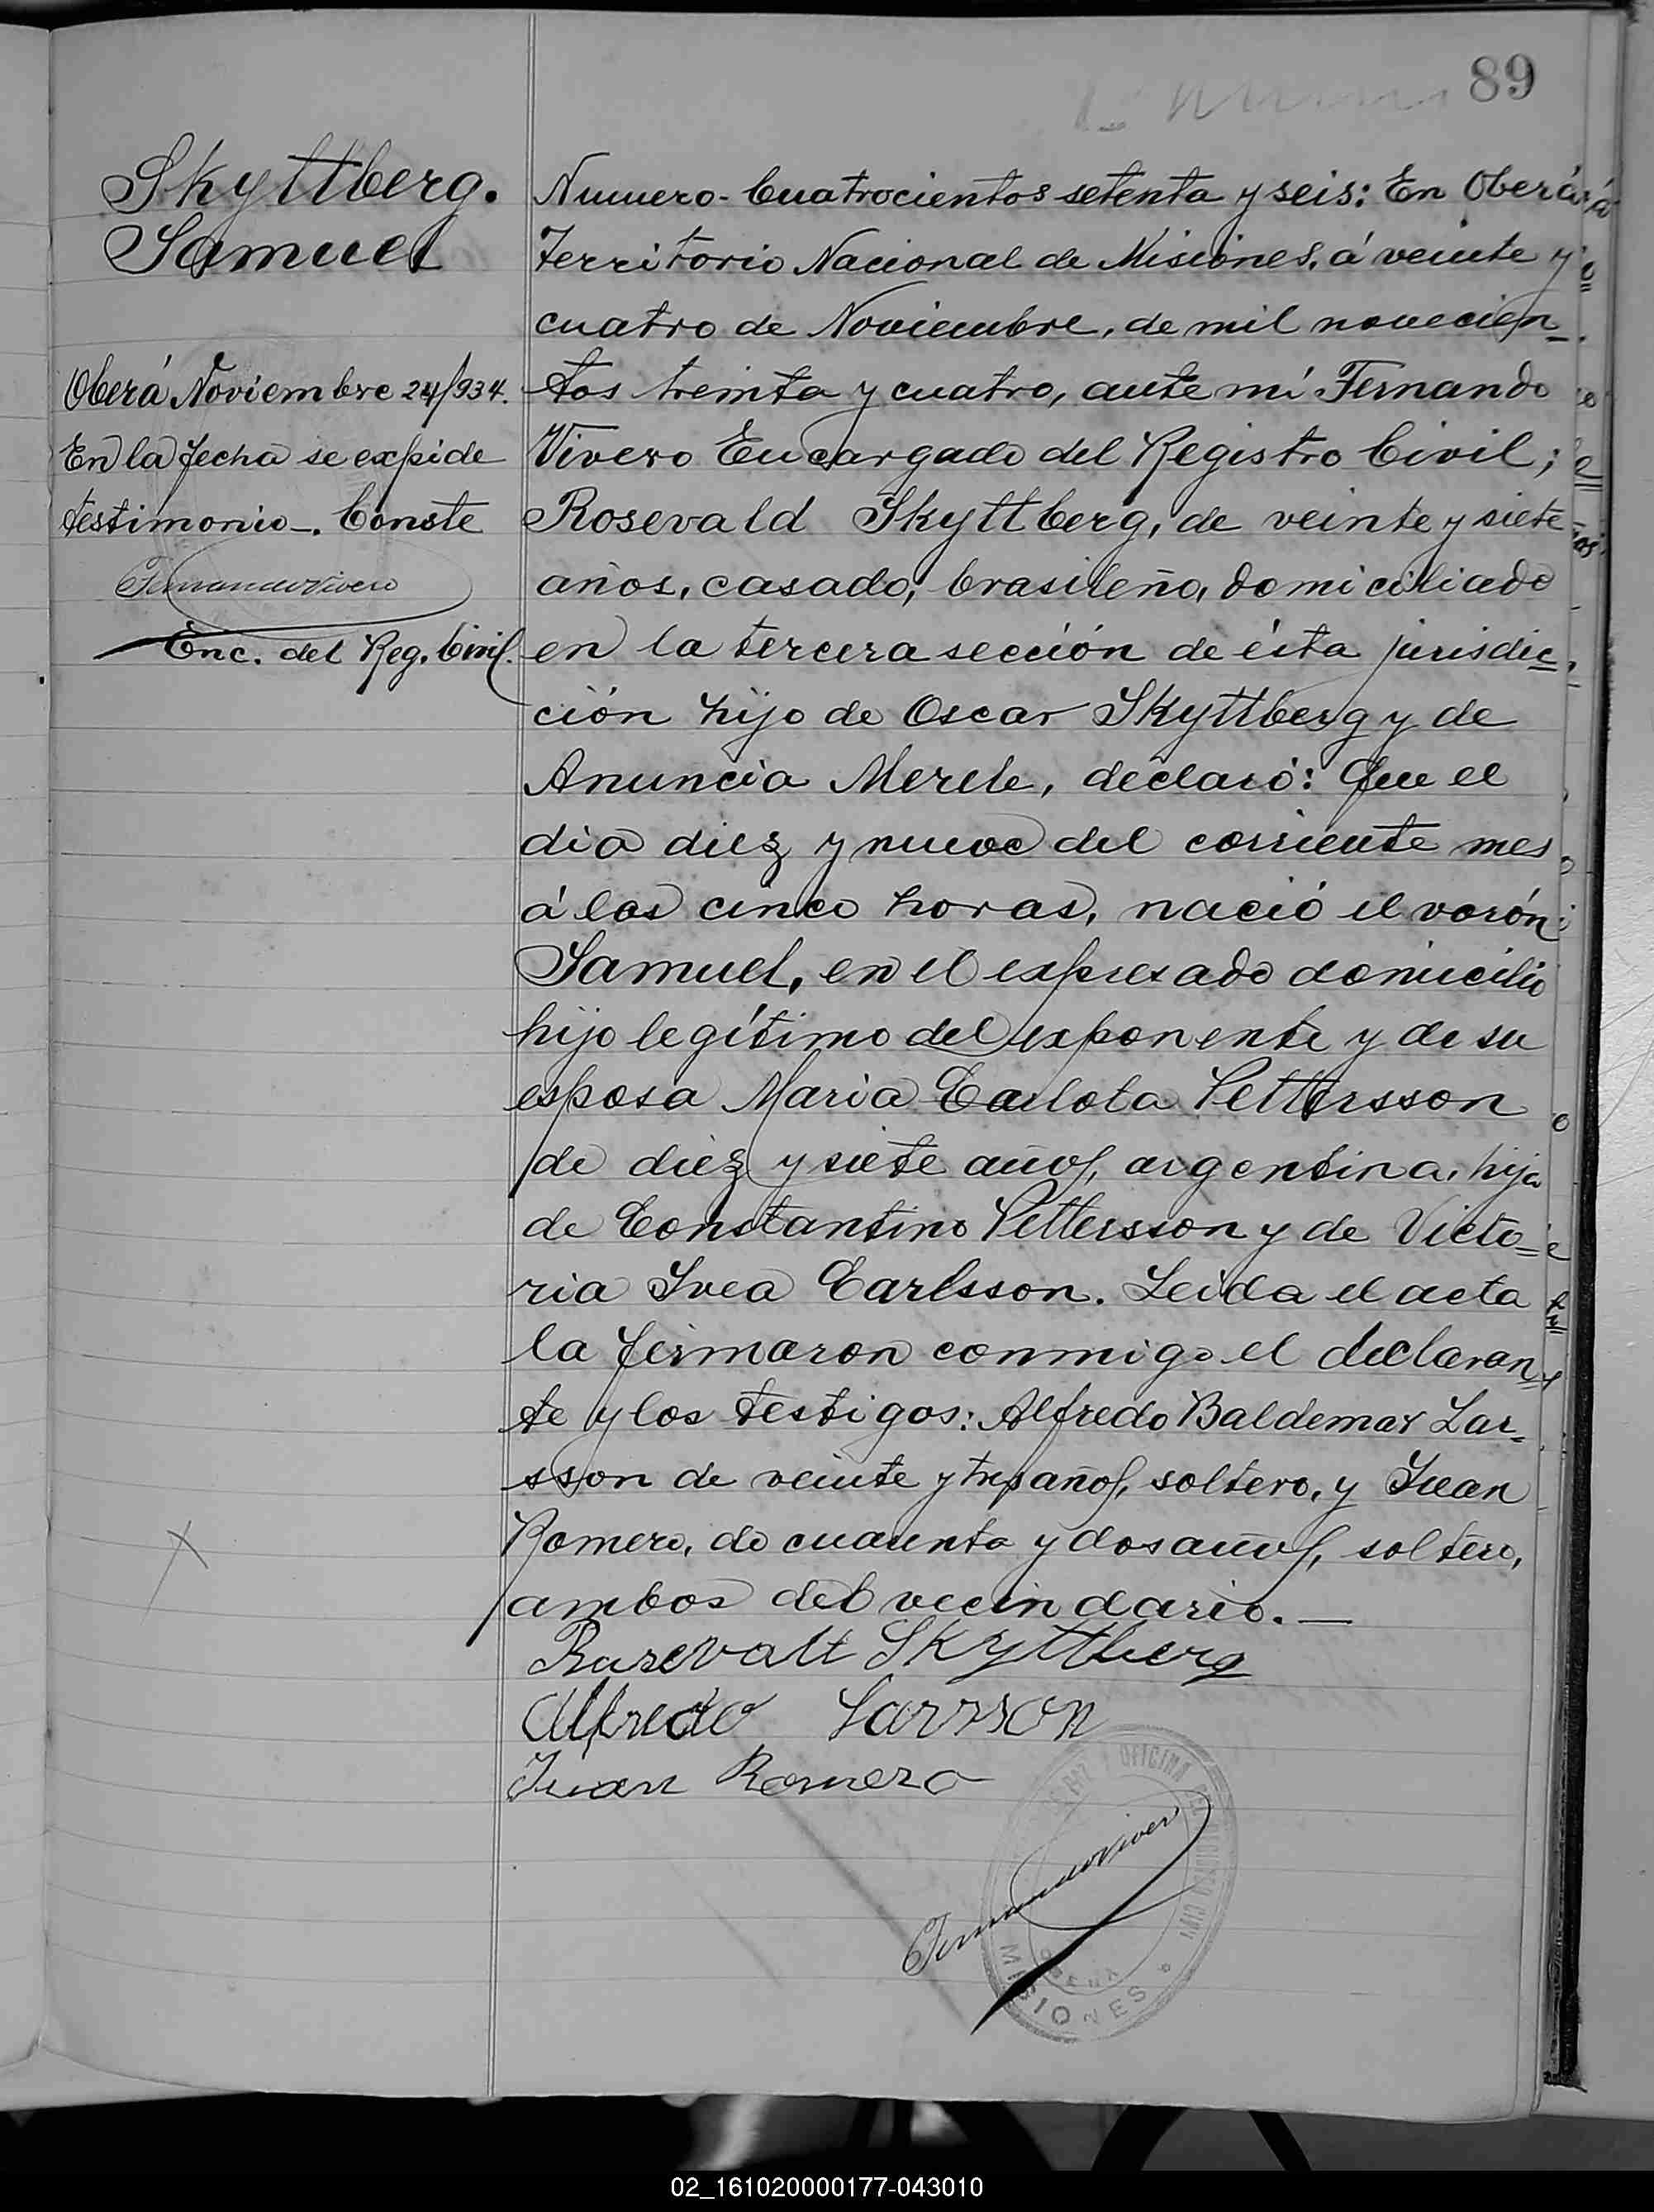 89
Skyttberg.
Samuel
Oberá Noviembre 24/934.
En la fecha se expide
testimonio-. Conste
Fernando Vivero
Enc. del Reg. Civil.
Numero- Cuatrocientos setenta y seis: En Oberá
Territorio Nacional de Misiones, á veinte y
cuatro de Noviembre, de mil novecien=
tos treinta y cuatro, ante mí Fernando
Vivero Encargado del Registro Civil;
Rosevald Skyttberg, de veinte y siete
años, casado, brasileño, domiciliado
en la tercera sección de ésta jurisdic=
ción hijo de Oscar Skyttberg y de
Anuncia Merele, declaró: Que el
dia diez y nueve del corriente mes
á las cinco horas, nació el varón
Samuel, en el expresado domicilio
hijo legítimo del exponente y de su
esposa Maria Carlota Pettersson
de diez y siete años, argentina, hija
de Constantino Pettersson y de Victo=
ria Ivea Carlsson. Leida el acta
la firmaron conmigo el declaran=
te y los testigos: Alfredo Baldemar Lar=
sson de veinte y tres años, soltero, y Juan
Romero, de cuarenta y dos años, soltero,
ambos del vecindario. —
Rusevalt Skyttberg
Alfredo Larsson
Juan Romero
Fernando Vivero
OFICINA DEL REGISTRO CIVIL
OBERA
MISIONES
02_161020000177-043010